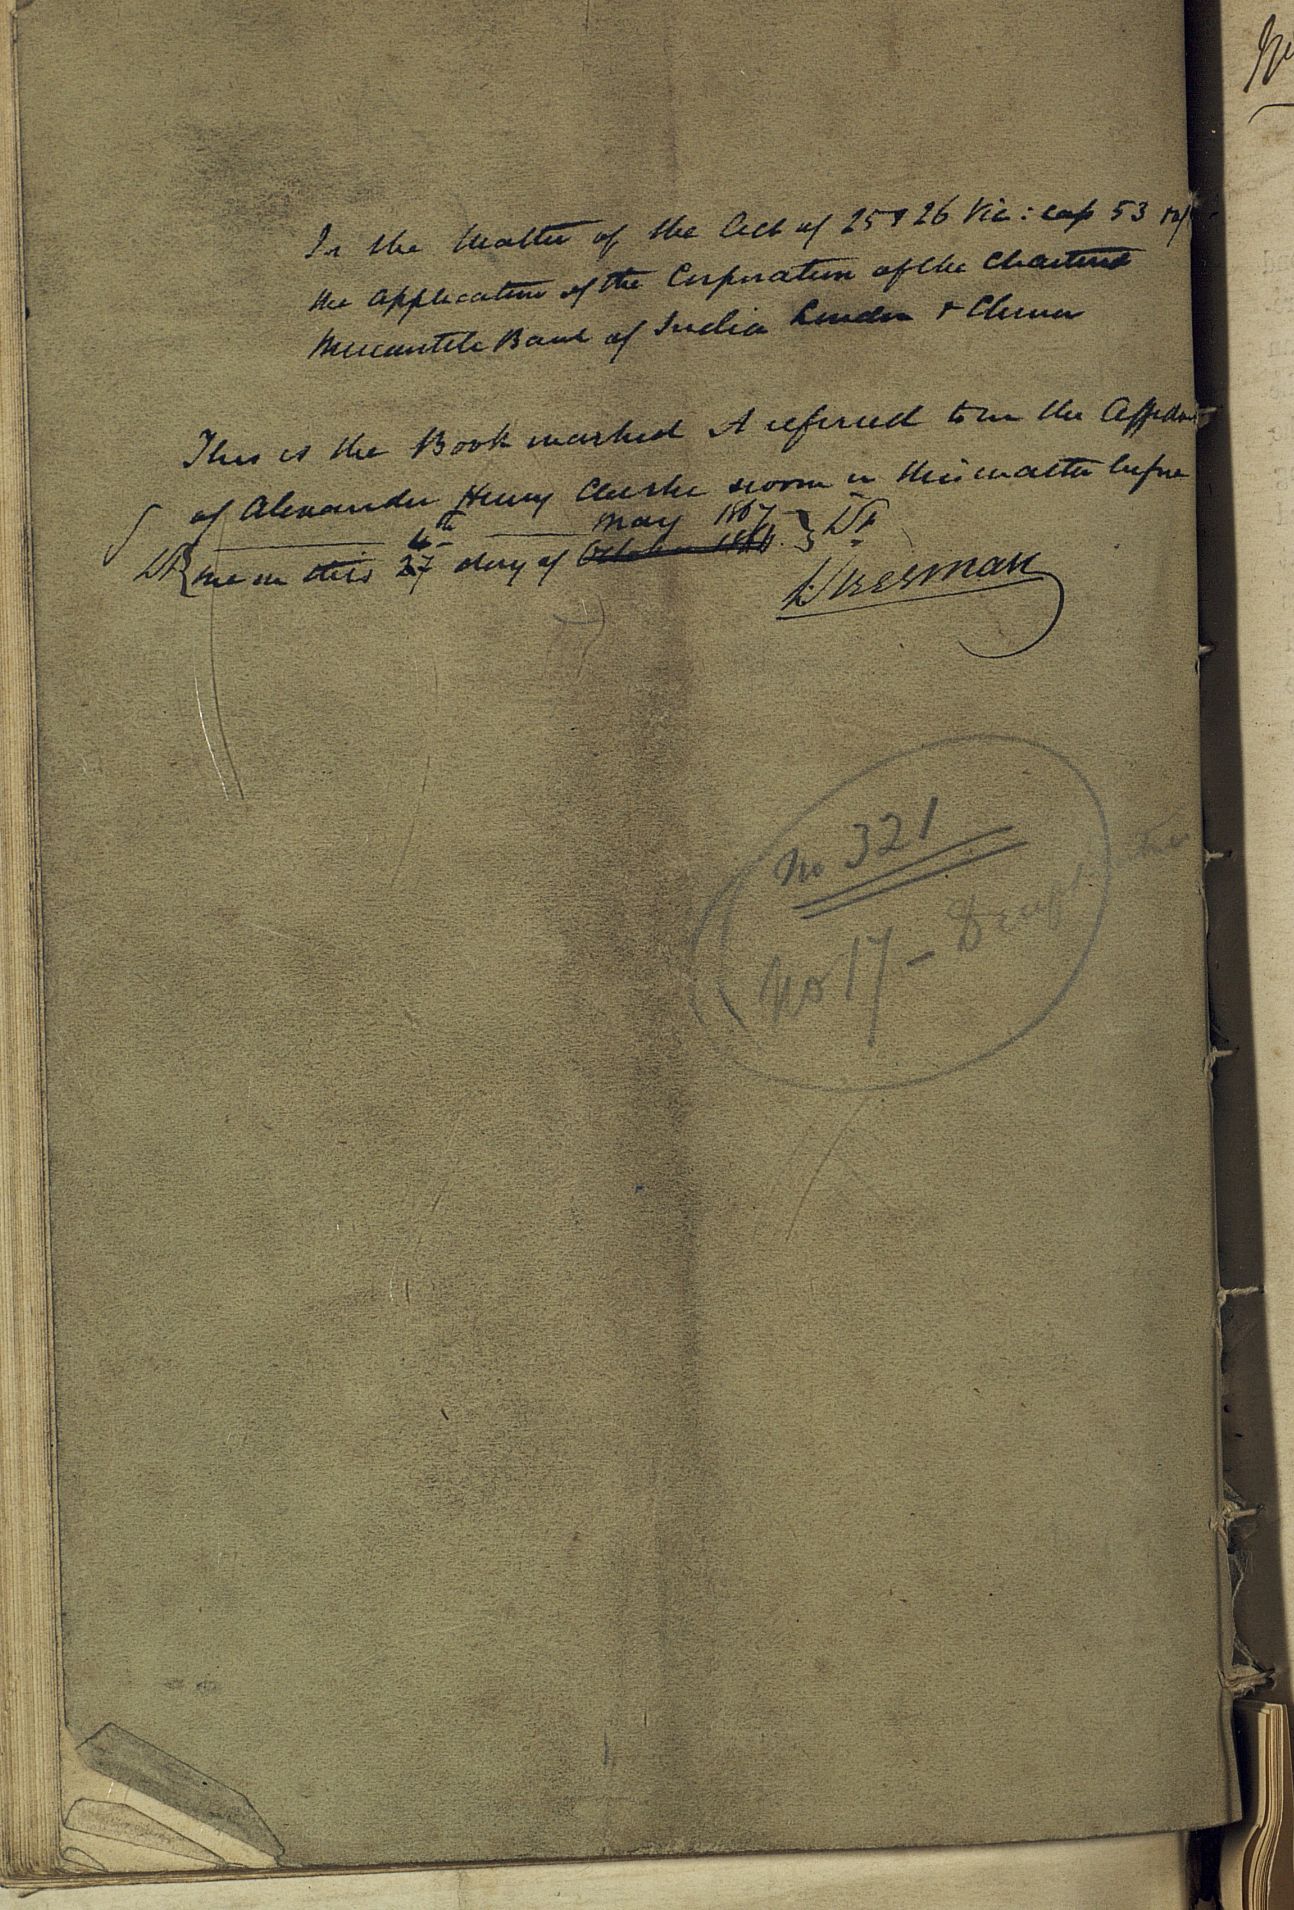 In the Matter of the Act of 25 & 26 Vic: cap 53 &
the Application of the Corporation of the Chartered
Mercantile Bank of India London & China
This is the Book marked A referred to in the Affidavit
of Alexander Henry Clerke sworn in this matter before
4th May 1867
me on this 27 day of October 1866
No 321
No 17 -